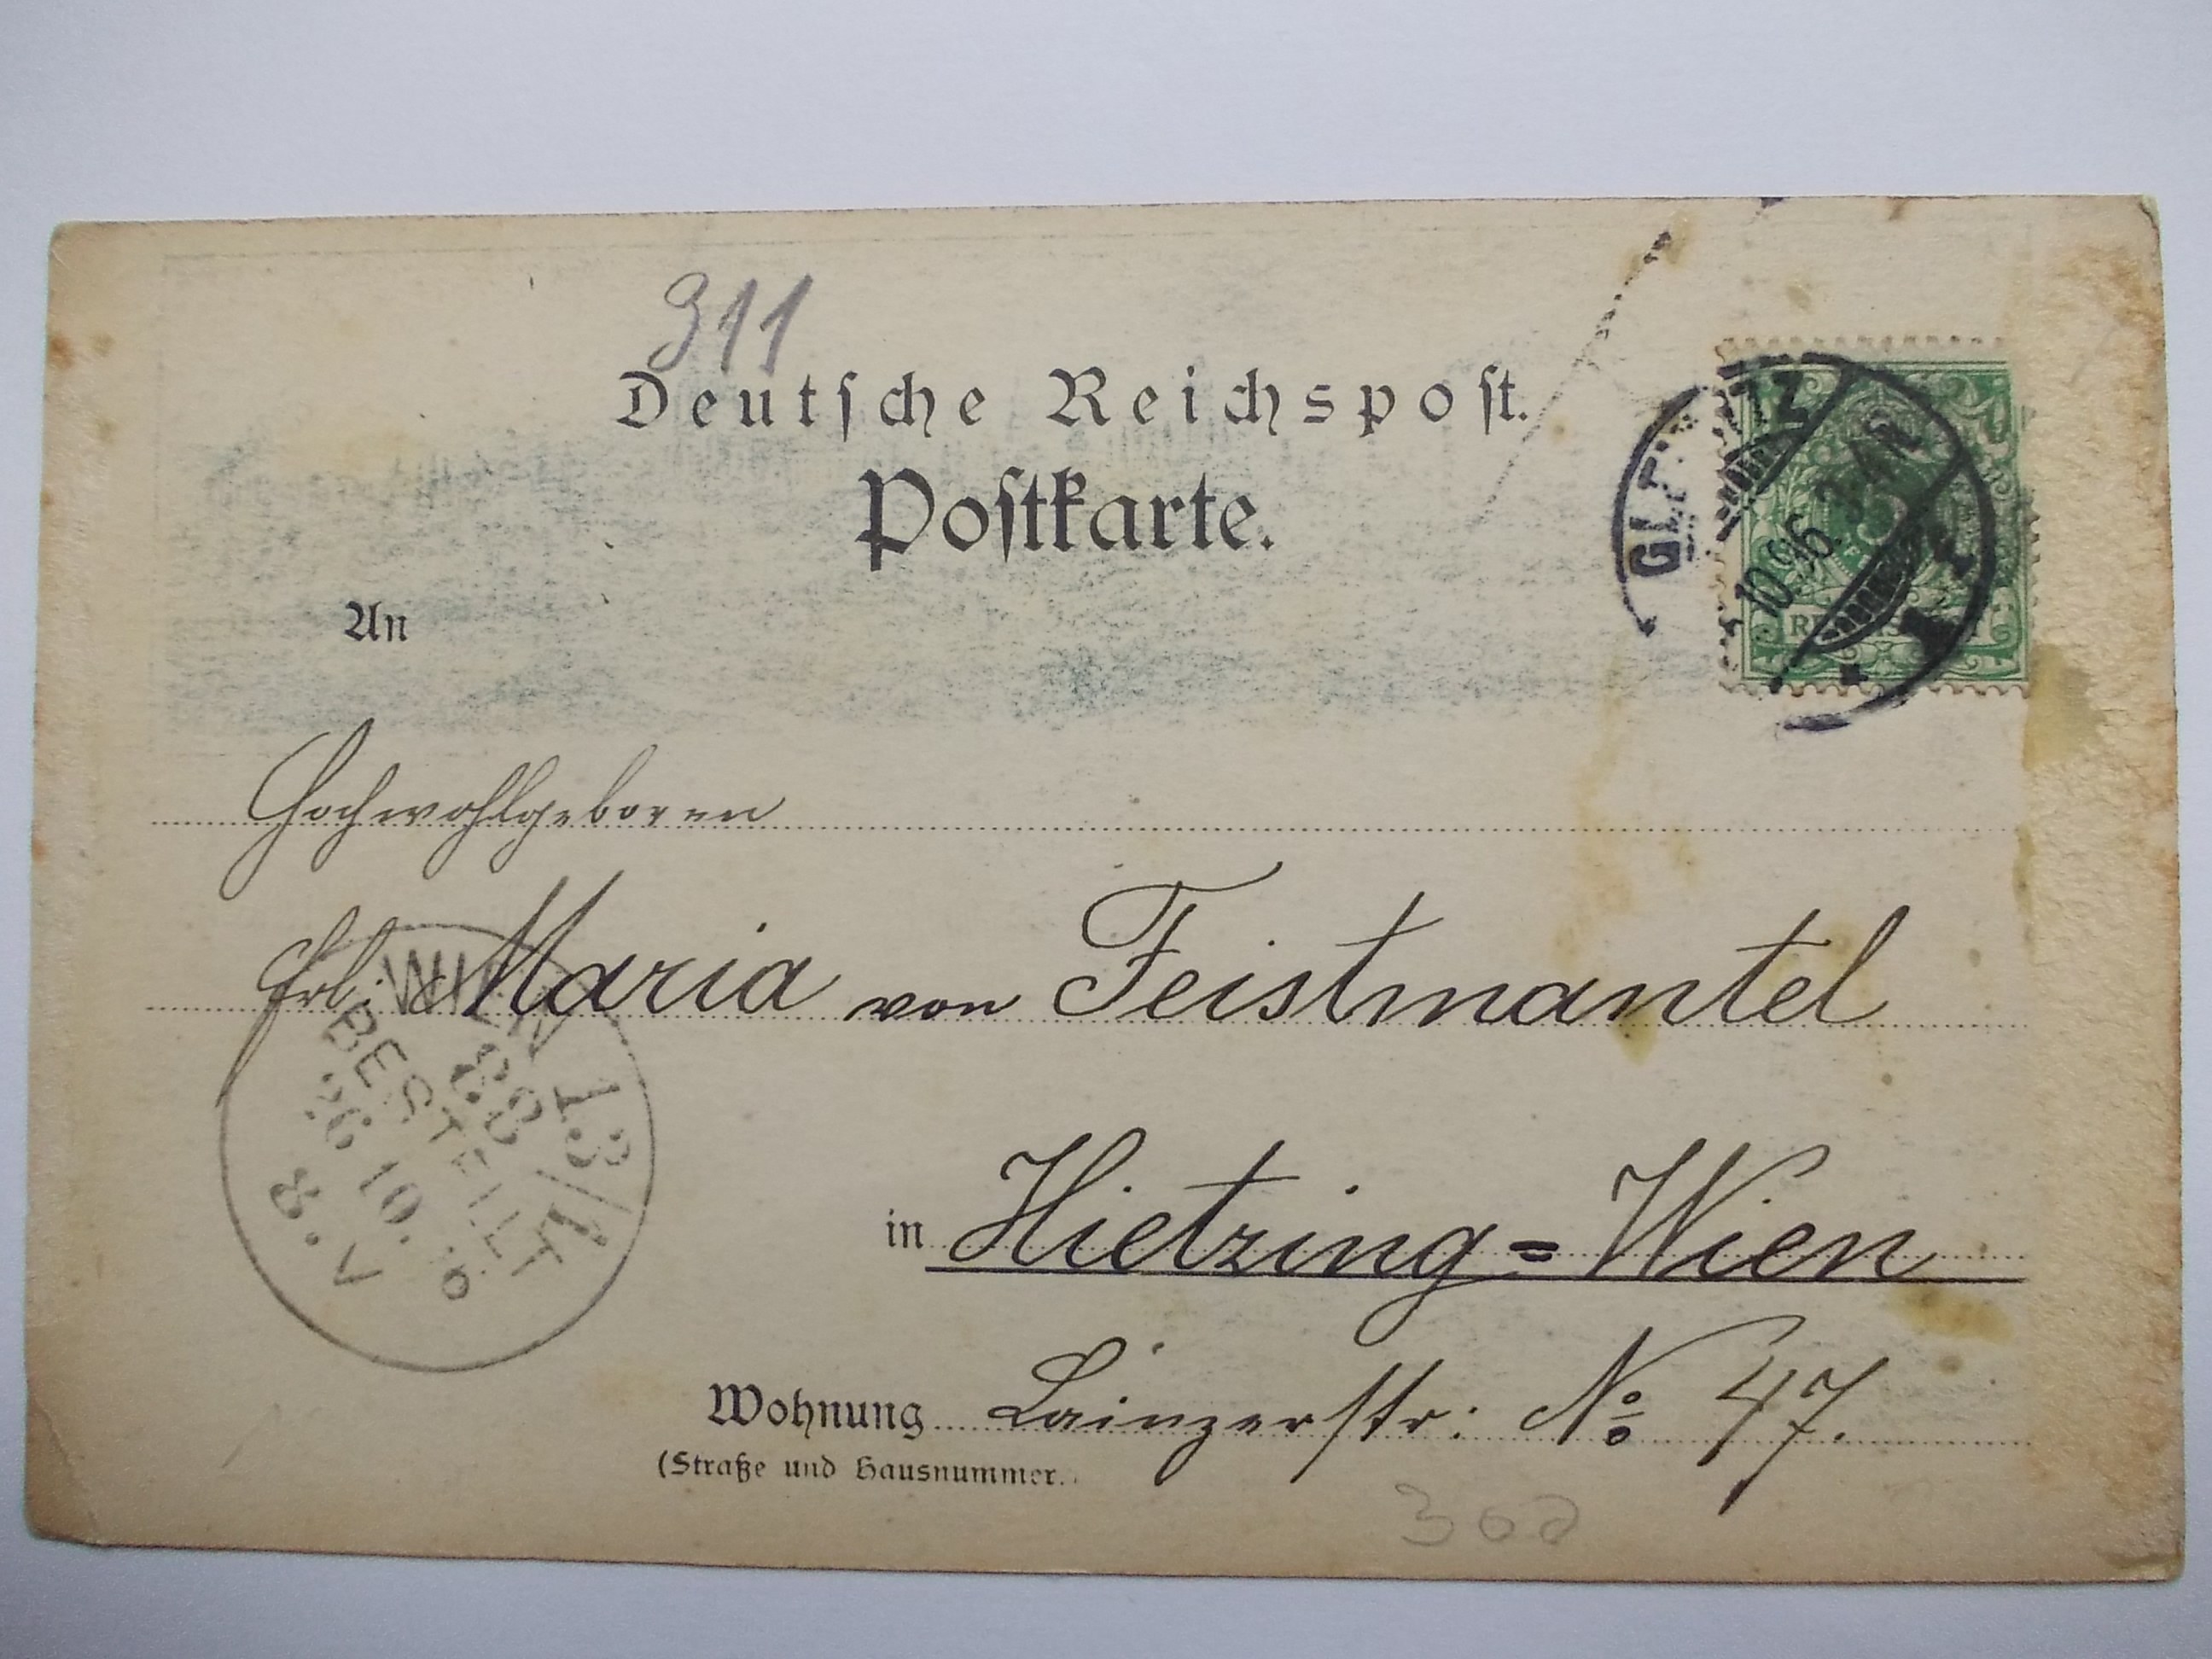 311
Deutsche Reichspost.
Postkarte.
10.96. 3-4N
An
Hochwohlgeboren
Frl: Maria von Feistmantel
WIEN 13/1
BESTELLT
26 10.96
8.V
in Hietzing=Wien
Wohnung Lainzerstr: No 47.
(Straße und Hausnummer.
300